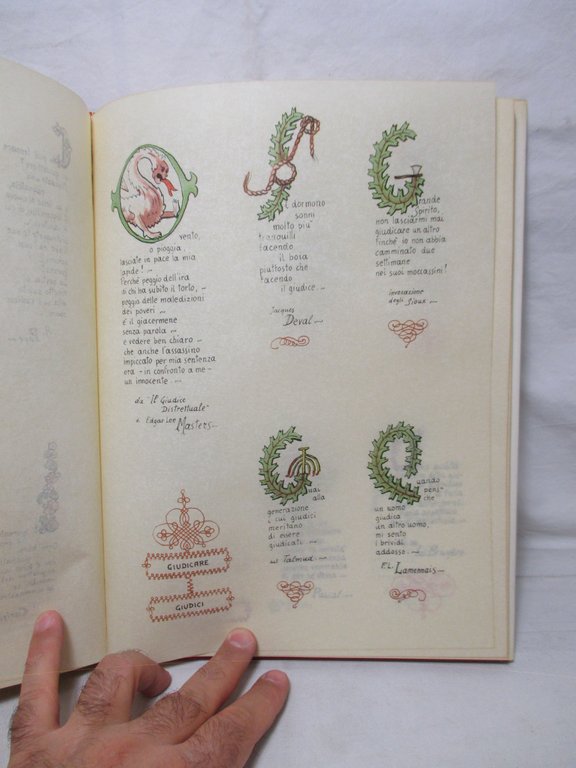 O vento,
o pioggia,
lasciate in pace la mia
lapide! —
Perché peggio dell'ira
di chi ha subito il torto, —
peggio delle maledizioni
dei poveri —
è il giacermene
senza parola —
e vedere ben chiaro —
che anche l'assassino
impiccato per mia sentenza
era - in confronto a me -
un innocente. —
da "Il Giudice
Distrettuale"
di Edgar Lee
Masters —
Si dormono
sonni
molto più
tranquilli
facendo
il boia
piuttosto che
facendo
il giudice. —
Jacques
Deval —
Grande
Spirito,
non lasciarmi mai
giudicare un altro
finché io non abbia
camminato due
settimane
nei suoi moccassini!
invocazione
degli Sioux —
GIUDICARE
GIUDICI
Guai
alla
generazione
i cui giudici
meritano
di essere
giudicati. —
Talmud —
Quando
penso
che
un uomo
giudica
un altro uomo,
mi sento
i brividi
addosso. —
Lamennais —